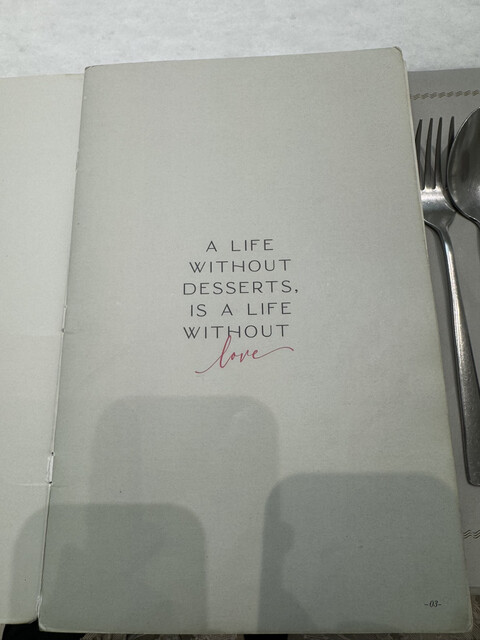 A LIFE
WITHOUT
DESSERTS,
IS A LIFE
WITHOUT
love
-03-